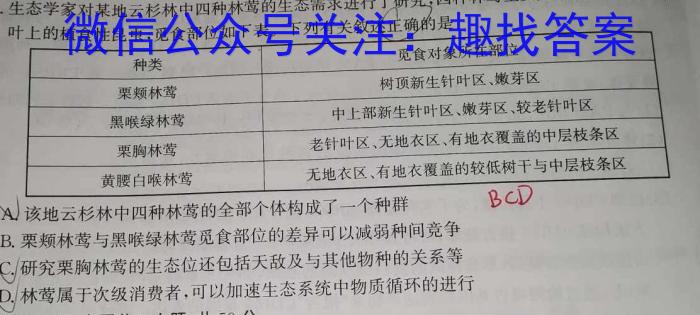 生态学家对某地云杉林中四种林莺的生态需求进行了研究
叶上的植食性昆虫,觅食部位如下表。下列有关叙述正确的是
微信公众号关注:趣找答案
种类 觅食对象所在部位
栗颊林莺 树顶新生针叶区、嫩芽区
黑喉绿林莺 中上部新生针叶区、嫩芽区、较老针叶区
栗胸林莺 老针叶区、无地衣区、有地衣覆盖的中层枝条区
黄腰白喉林莺 无地衣区、有地衣覆盖的较低树干与中层枝条区
BCD
A. 该地云杉林中四种林莺的全部个体构成了一个种群
B. 栗颊林莺与黑喉绿林莺觅食部位的差异可以减弱种间竞争
C. 研究栗胸林莺的生态位还包括天敌及与其他物种的关系等
D. 林莺属于次级消费者,可以加速生态系统中物质循环的进行